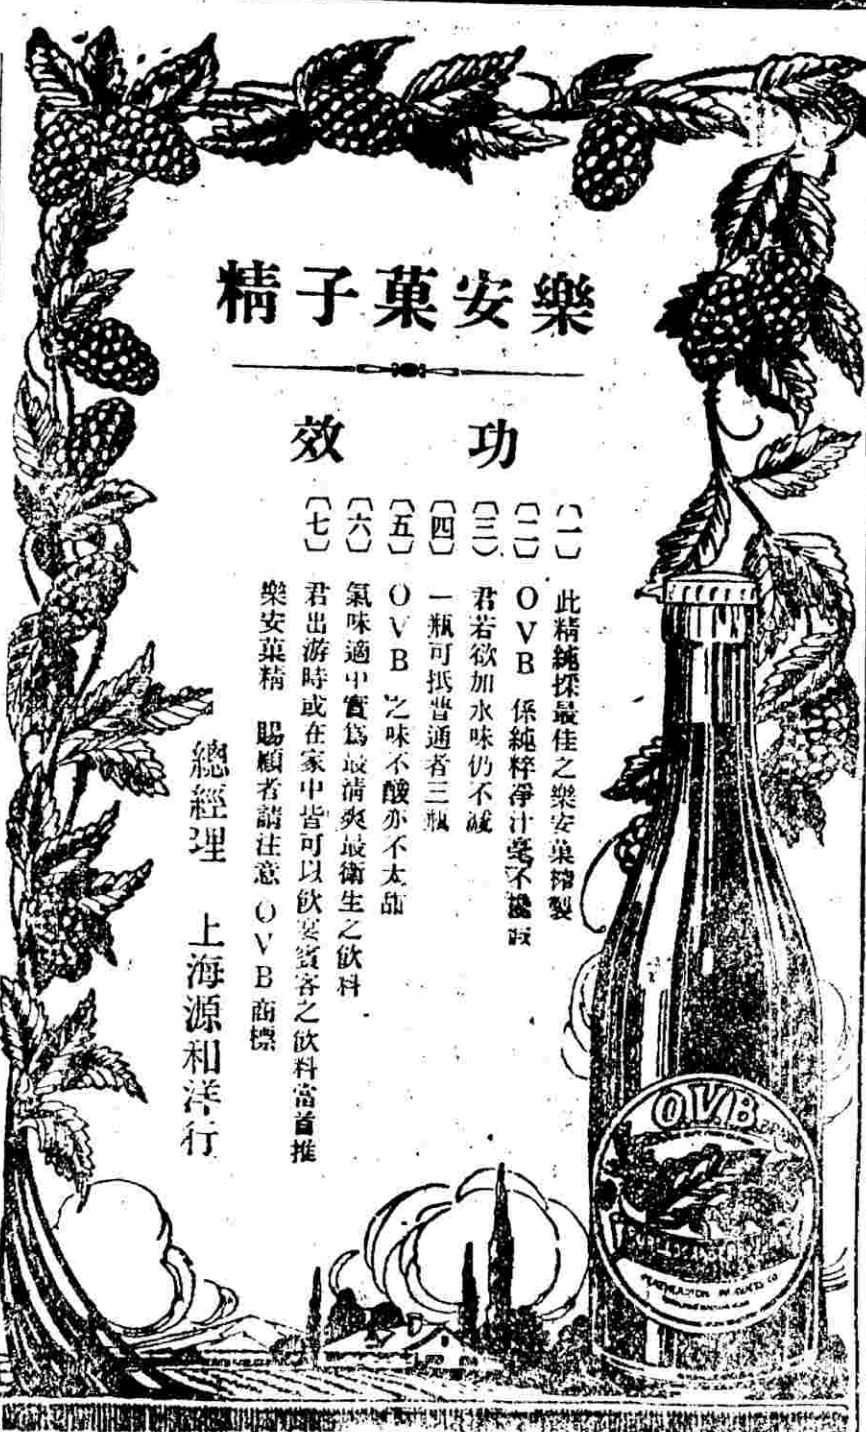 樂安菓子精
功效
〔一〕此精純採最佳之樂安菓搾製
〔二〕OVB 係純粹淨汁毫不攙假
〔三〕君若欲加水味仍不減
〔四〕一瓶可抵普通者三瓶
〔五〕OVB 之味不酸亦不太甜
〔六〕氣味適中實爲最清爽最衛生之飲料
〔七〕君出游時或在家中皆可以飲宴賓客之飲料當首推
樂安菓精 賜顧者請注意 OVB 商標
總經理 上海源和洋行
OVB